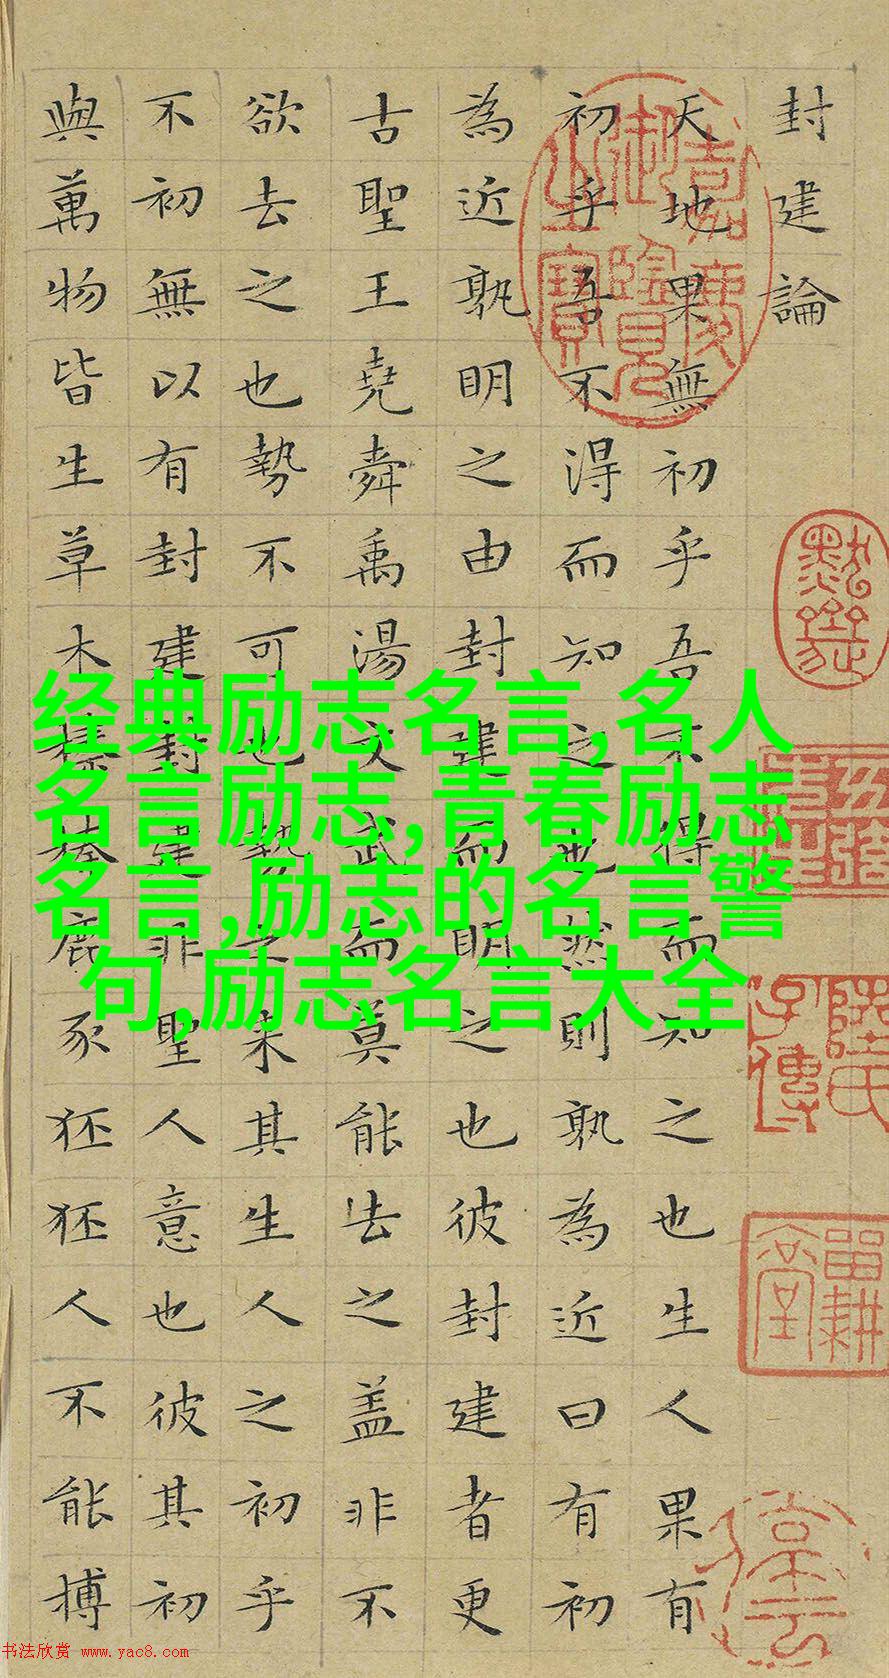 封建論
天地果無初乎吾不得而知之也生人果有
初乎吾不淂而知之也然則孰為近曰有初
為近孰明之由封建而明之也彼封建者更
古聖王堯舜禹湯文武而莫能去之盖非不
欲去之也勢不可也勢之来其生人之初乎
不初無以有封建封建非聖人意也彼其初
與萬物皆生草木榛榛鹿豕狉狉人不能搏
嘉慶御覽之寶
陸氏子傳
畱耕堂
经典励志名言,名人
名言励志,青春励志
名言,励志的名言警
句,励志名言大全
书法欣赏 www.yac8.com